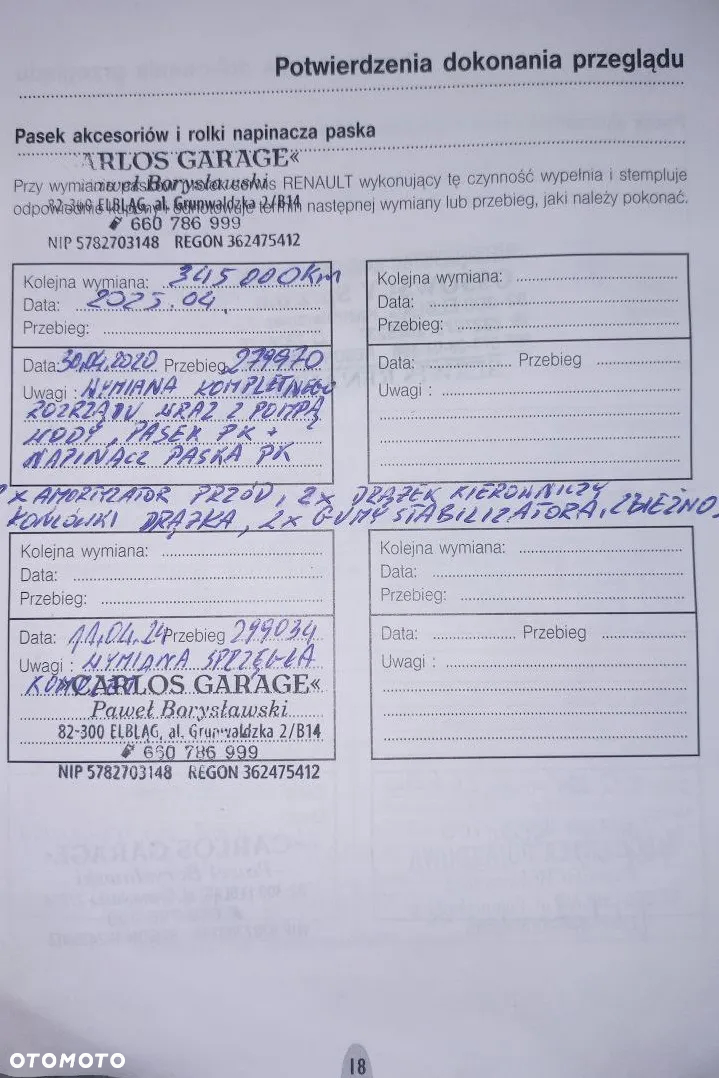 Potwierdzenia dokonania przeglądu
Pasek akcesoriów i rolki napinacza paska
ARLOS GARAGE«
Paweł Borysławski
Przy wymianie RENAULT wykonujący tę czynność wypełnia i stempluje
82-300 ELBLĄG, al. Grunwaldzka 2/B14
odpowiednie kupony i odnotowuje termin następnej wymiany lub przebieg, jaki należy pokonać.
660 786 999
NIP 5782703148 REGON 362475412
Kolejna wymiana: 345 000KM
Data: 2025.04.
Przebieg:
Data: 30.04.2020 Przebieg 279970
Uwagi : WYMIANA KOMPLETNEGO
ROZRZĄDU WRAZ Z POMPĄ
WODY, PASEK PK +
NAPINACZ PASKA PK
Kolejna wymiana:
Data:
Przebieg:
Data: Przebieg
Uwagi :
X AMORTYZATOR PRZÓD, 2x DRĄŻEK KIEROWNICZY
KOŃCÓWKI DRĄŻKA, 2x GUMY STABILIZATORA, ZBIEŻNO
Kolejna wymiana:
Data:
Przebieg:
Data: 11.04.24 Przebieg 299034
Uwagi : WYMIANA SPRZĘGŁA
»CARLOS GARAGE«
Paweł Borysławski
82-300 ELBLĄG, al. Grunwaldzka 2/B14
660 786 999
NIP 5782703148 REGON 362475412
Kolejna wymiana:
Data:
Przebieg:
Data: Przebieg
Uwagi :
18
OTOMOTO